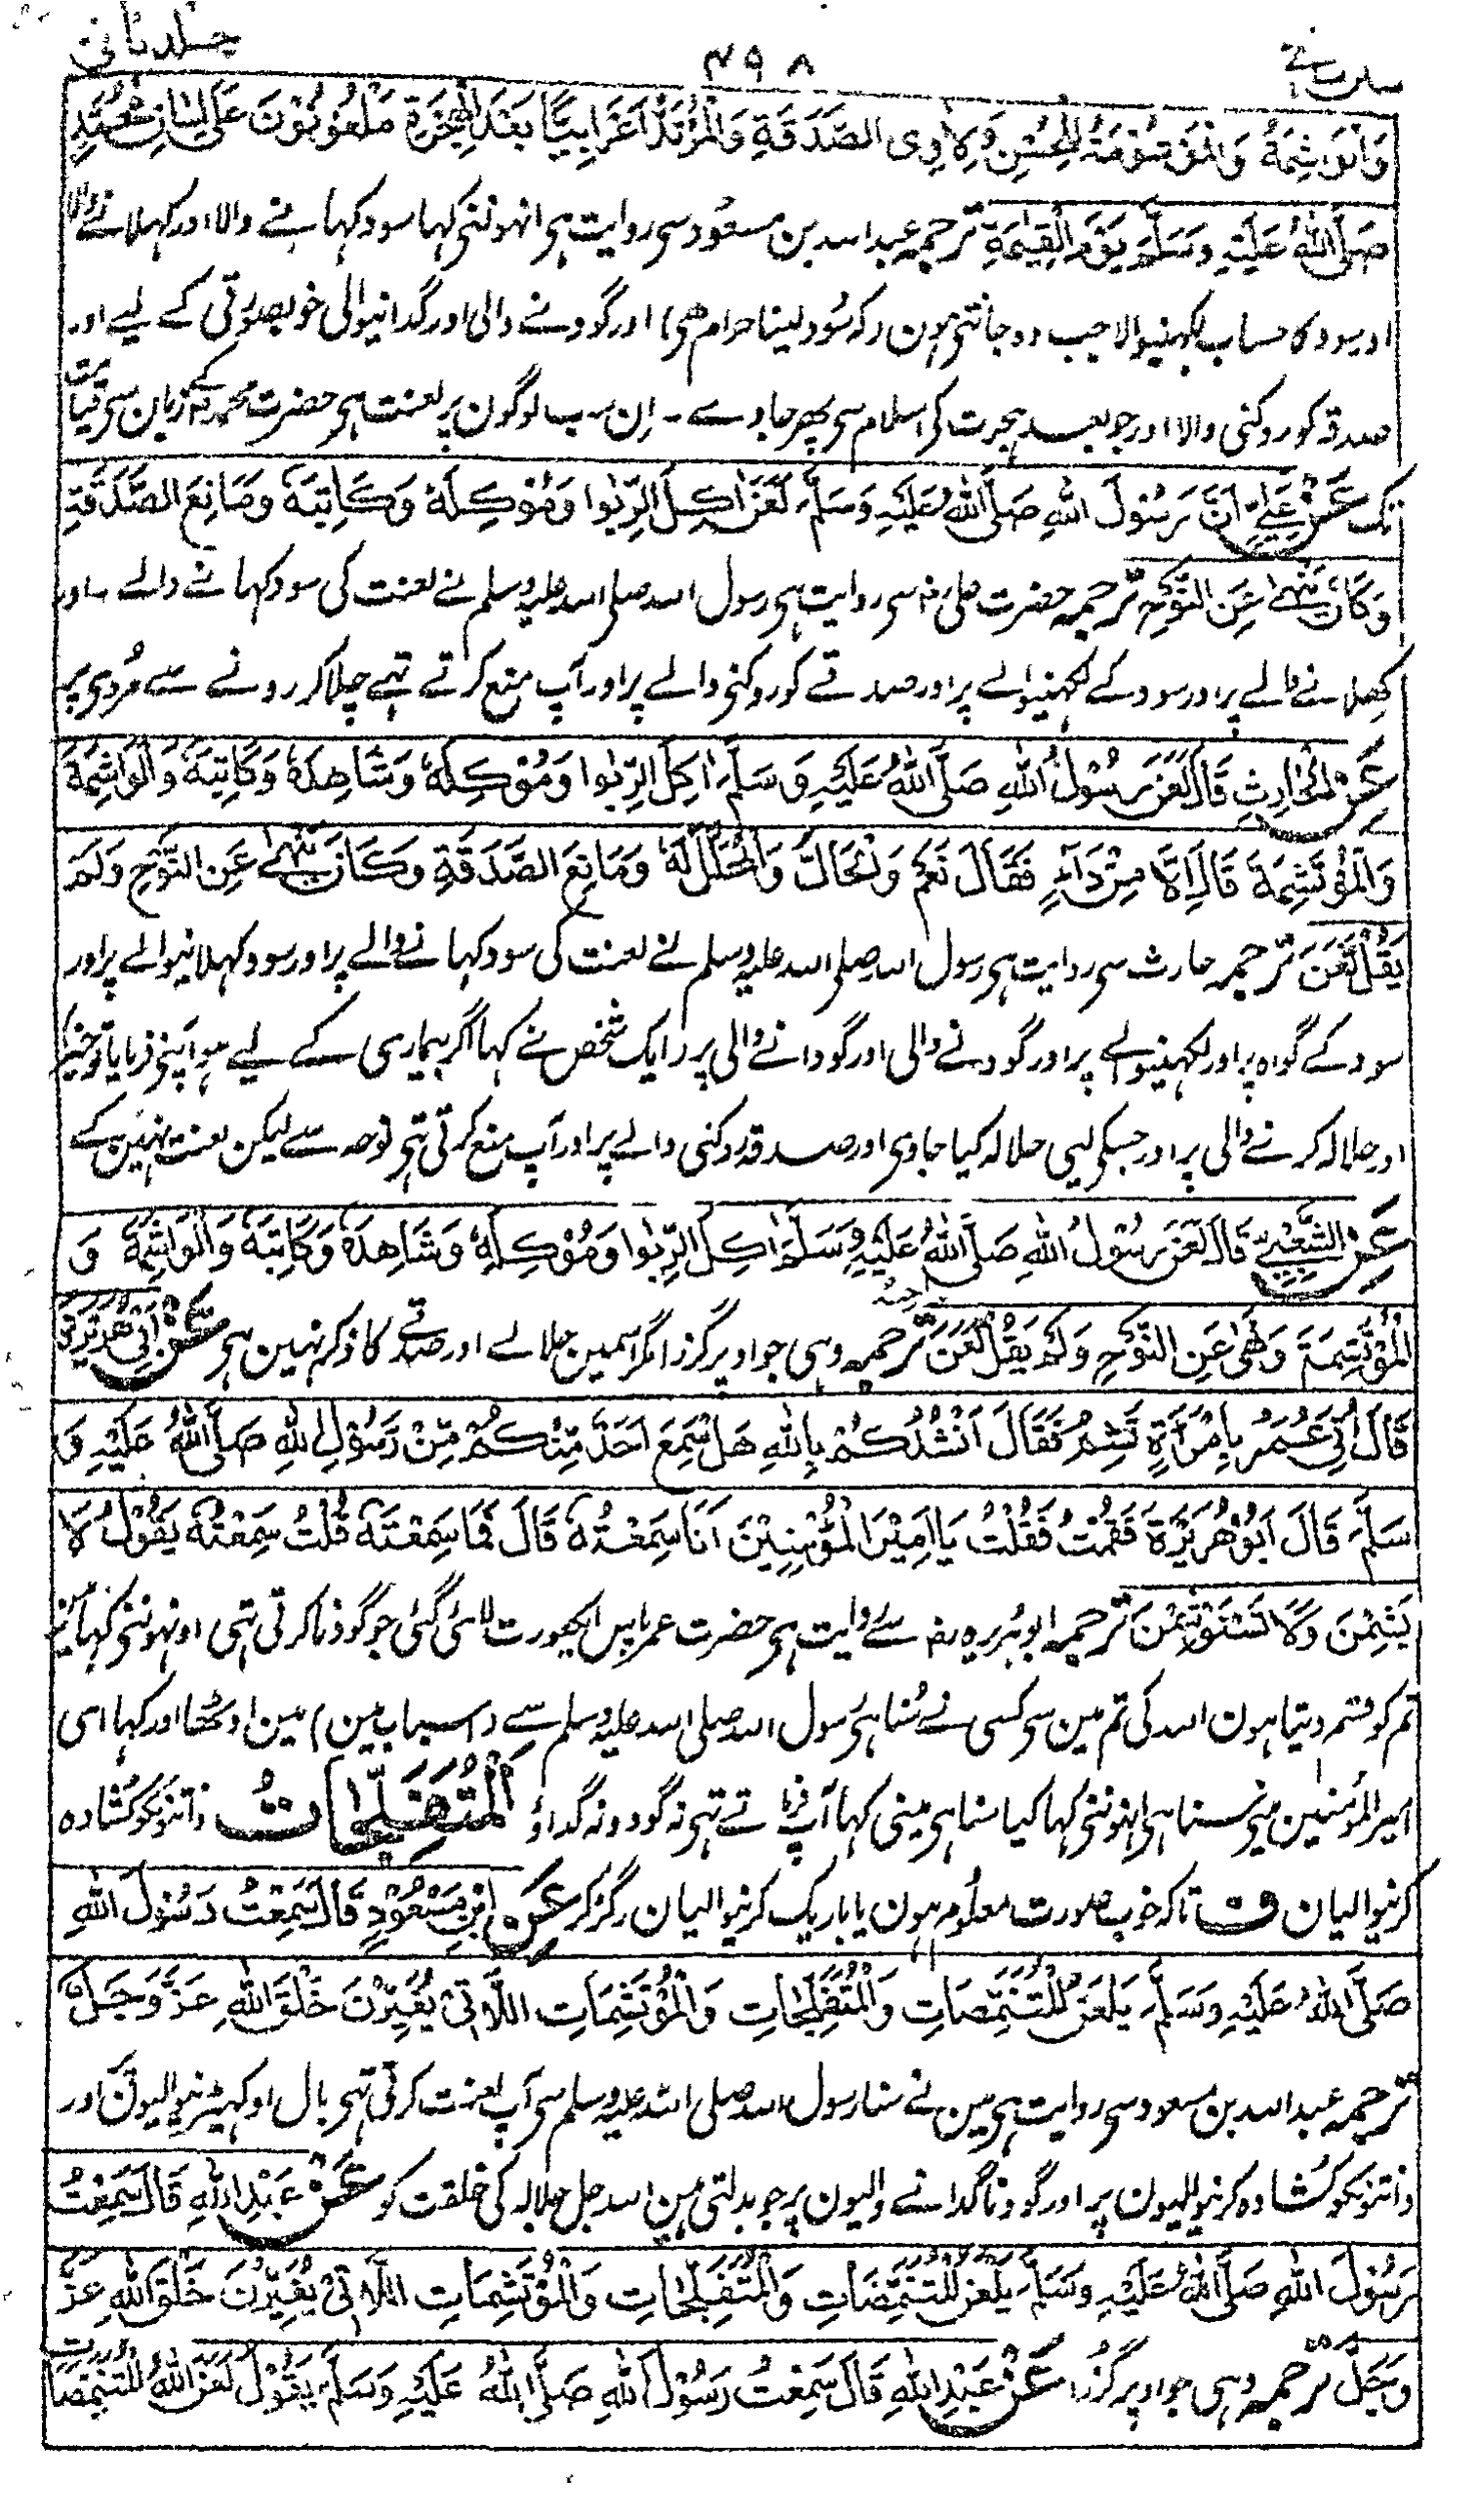 سنن نسائی ۴۹۸ جلد ثانی
وَالْوَاشِمَةُ وَالْمَوْشُوْمَةُ لِلْحُسْنِ وَلَاوِی الصَّدَقَةِ وَالْمُرْتَدُّ اَعْرَابِیًّا بَعْدَ الْهِجْرَةِ مَلْعُوْنُوْنَ عَلٰى لِسَانِ مُحَمَّدٍ
صَلَّى اللّٰهُ عَلَیْهِ وَسَلَّمَ یَوْمَ الْقِیٰمَةِ ترجمہ عبد اللہ بن مسعود سی روایت ہی انہوننی کہا سود کہا نے والا اور کہلانے والا
اور سود کا حساب لکہنیوالا جب وہ جانتی ہون (کہ سُود لینا حرام ہی) اور گودنے والی اور گدانیوالی خوبصورتی کے لیے اور
صدقہ کو روکنی والا اور جو بعد ہجرت کی اسلام سی پھر جاوے ۔ اِن سب لوگون پر لعنت ہی حضرت محمد کے زبان سی قیامت
تک عَنْ عَلِیٍّ اَنَّ رَسُوْلَ اللّٰهِ صَلَّى اللّٰهُ عَلَیْهِ وَسَلَّمَ لَعَنَ اٰكِلَ الرِّبٰوا وَمُوْكِلَهٗ وَكَاتِبَهٗ وَمَانِعَ الصَّدَقَةِ
وَكَانَ یَنْهٰى عَنِ النَّوْحِ ترجمہ حضرت علی رضہ سی روایت ہی رسول اللہ صلی اللہ علیہ وسلم نے لعنت کی سود کہانے والے ۔ اور
کھلانے والے پر اور سود کے لکہنیوالے پر اور صدقے کو روکنی والے پر اور آپ منع کرتے تہے چلاکر رونے سے مُردی پر
عَنِ الْحَارِثِ قَالَ لَعَنَ رَسُوْلُ اللّٰهِ صَلَّى اللّٰهُ عَلَیْهِ وَسَلَّمَ اٰكِلَ الرِّبٰوا وَمُوْكِلَهٗ وَشَاهِدَهٗ وَكَاتِبَهٗ وَالْوَاشِمَةَ
وَالْمُؤْتَشِمَةَ قَالَ اِلَّا مِنْ دَاءٍ فَقَالَ نَعَمْ وَالْحَالَّ وَالْمُحَلَّلَ لَهٗ وَمَانِعَ الصَّدَقَةِ وَكَانَ یَنْهٰى عَنِ النَّوْحِ وَلَمْ
یَقُلْ لَعَنَ ترجمہ حارث سی روایت ہی رسول اللہ صلی اللہ علیہ وسلم نے لعنت کی سود کہانے والے پر اور سود کہلانیوالے پر اور
سود کے گواہ پر اور لکہنیوالے پر اور گودنے والی اور گودانے والی پر ایک شخص نے کہا اگر بیماری کے لیے ہو آپنی فرمایا تو خیر
اور حلالہ کرنے والی پر اور جسکی لیی حلالہ کیا جاوی اور صدقہ روکنی والے پر اور آپ منع کرتی تہی نوحہ سے لیکن لعنت نہین کے
عَنِ الشَّعْبِیِّ قَالَ لَعَنَ رَسُوْلُ اللّٰهِ صَلَّى اللّٰهُ عَلَیْهِ وَسَلَّمَ اٰكِلَ الرِّبٰوا وَمُوْكِلَهٗ وَشَاهِدَهٗ وَكَاتِبَهٗ وَالْوَاشِمَةَ وَ
الْمُؤْتَشِمَةَ وَنَهٰى عَنِ النَّوْحِ وَلَمْ یَقُلْ لَعَنَ ترجمہ وہی جو اوپر گزرا مگر اسمین حلالے اور صدقے کا ذکر نہین ہی عَنْ اَبِیْ هُرَیْرَةَ
قَالَ اُتِیَ عُمَرُ بِامْرَأَةٍ تَشِمُ فَقَالَ اَنْشُدُكُمْ بِاللّٰهِ هَلْ سَمِعَ اَحَدٌ مِّنْكُمْ مِّنْ رَسُوْلِ اللّٰهِ صَلَّى اللّٰهُ عَلَیْهِ وَ
سَلَّمَ قَالَ اَبُوْ هُرَیْرَةَ فَقُمْتُ فَقُلْتُ یَا اَمِیْرَ الْمُؤْمِنِیْنَ اَنَا سَمِعْتُهٗ قَالَ فَمَا سَمِعْتَهٗ قُلْتُ سَمِعْتُهٗ یَقُوْلُ لَا
یَشِمْنَ وَلَا تَسْتَوْشِمْنَ ترجمہ ابو ہریرہ رضہ سے روایت ہی حضرت عمر پاس ایک عورت لائی گئی جو گودنا کرتی تہی اونہوننی کہا مین
تم کو قسم دیتا ہون اللہ کی تم مین سی کسی نے سُنا ہی رسول اللہ صلی اللہ علیہ وسلم سے (اس باب مین) مین اوٹھا اور کہا ای
امیر المؤمنین مینی سنا ہی انہوننی کہا کیا سنا ہی مینی کہا آپ فرماتے تہی نہ گودو نہ گداؤ الْمُتَفَلِّجَاتُ دانتونکو کشادہ
کرنیوالیان ف تاکہ خوب صورت معلوم ہون یا باریک کرنیوالیان رگڑ کر عَنِ ابْنِ مَسْعُوْدٍ قَالَ سَمِعْتُ رَسُوْلَ اللّٰهِ
صَلَّى اللّٰهُ عَلَیْهِ وَسَلَّمَ یَلْعَنُ الْمُتَنَمِّصَاتِ وَالْمُتَفَلِّجَاتِ وَالْمُؤْتَشِمَاتِ اللَّاتِیْ یُغَیِّرْنَ خَلْقَ اللّٰهِ عَزَّ وَجَلَّ
ترجمہ عبد اللہ بن مسعود سی روایت ہی مین نے سنا رسول اللہ صلی اللہ علیہ وسلم سی آپ لعنت کرتی تہی بال اوکہیڑنیوالیون اور
دانتونکو کشادہ کرنیوالیون پر اور گودنا گدانے والیون پر جو بدلتی ہین اللہ جل جلالہ کی خلقت کو عَنْ عَبْدِ اللّٰهِ قَالَ سَمِعْتُ
رَسُوْلَ اللّٰهِ صَلَّى اللّٰهُ عَلَیْهِ وَسَلَّمَ یَلْعَنُ الْمُتَنَمِّصَاتِ وَالْمُتَفَلِّجَاتِ وَالْمُؤْتَشِمَاتِ اللَّاتِیْ یُغَیِّرْنَ خَلْقَ اللّٰهِ عَزَّ
وَجَلَّ ترجمہ وہی جو اوپر گزرا عَنْ عَبْدِ اللّٰهِ قَالَ سَمِعْتُ رَسُوْلَ اللّٰهِ صَلَّى اللّٰهُ عَلَیْهِ وَسَلَّمَ یَقُوْلُ لَعَنَ اللّٰهُ الْمُتَنَمِّصَاتِ